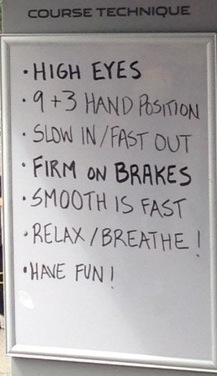 COURSE TECHNIQUE
• HIGH EYES
• 9 + 3 HAND POSITION
• SLOW IN / FAST OUT
• FIRM ON BRAKES
• SMOOTH IS FAST
• RELAX / BREATHE !
• HAVE FUN !